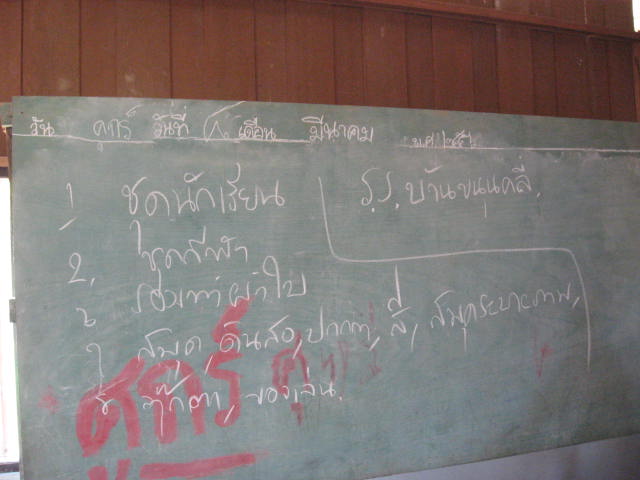 วัน ศุกร์ วันที่ ๘ เดือน มีนาคม พ.ศ.
1 ชุดนักเรียน
ร.ร. บ้านขนุนคลี่.
2. ชุดกีฬา
รองเท้าผ้าใบ
สมุด, ดินสอ, ปากกา, สี, สมุดระบายภาพ,
ตุ๊กตา, ของเล่น.
ศุกร์